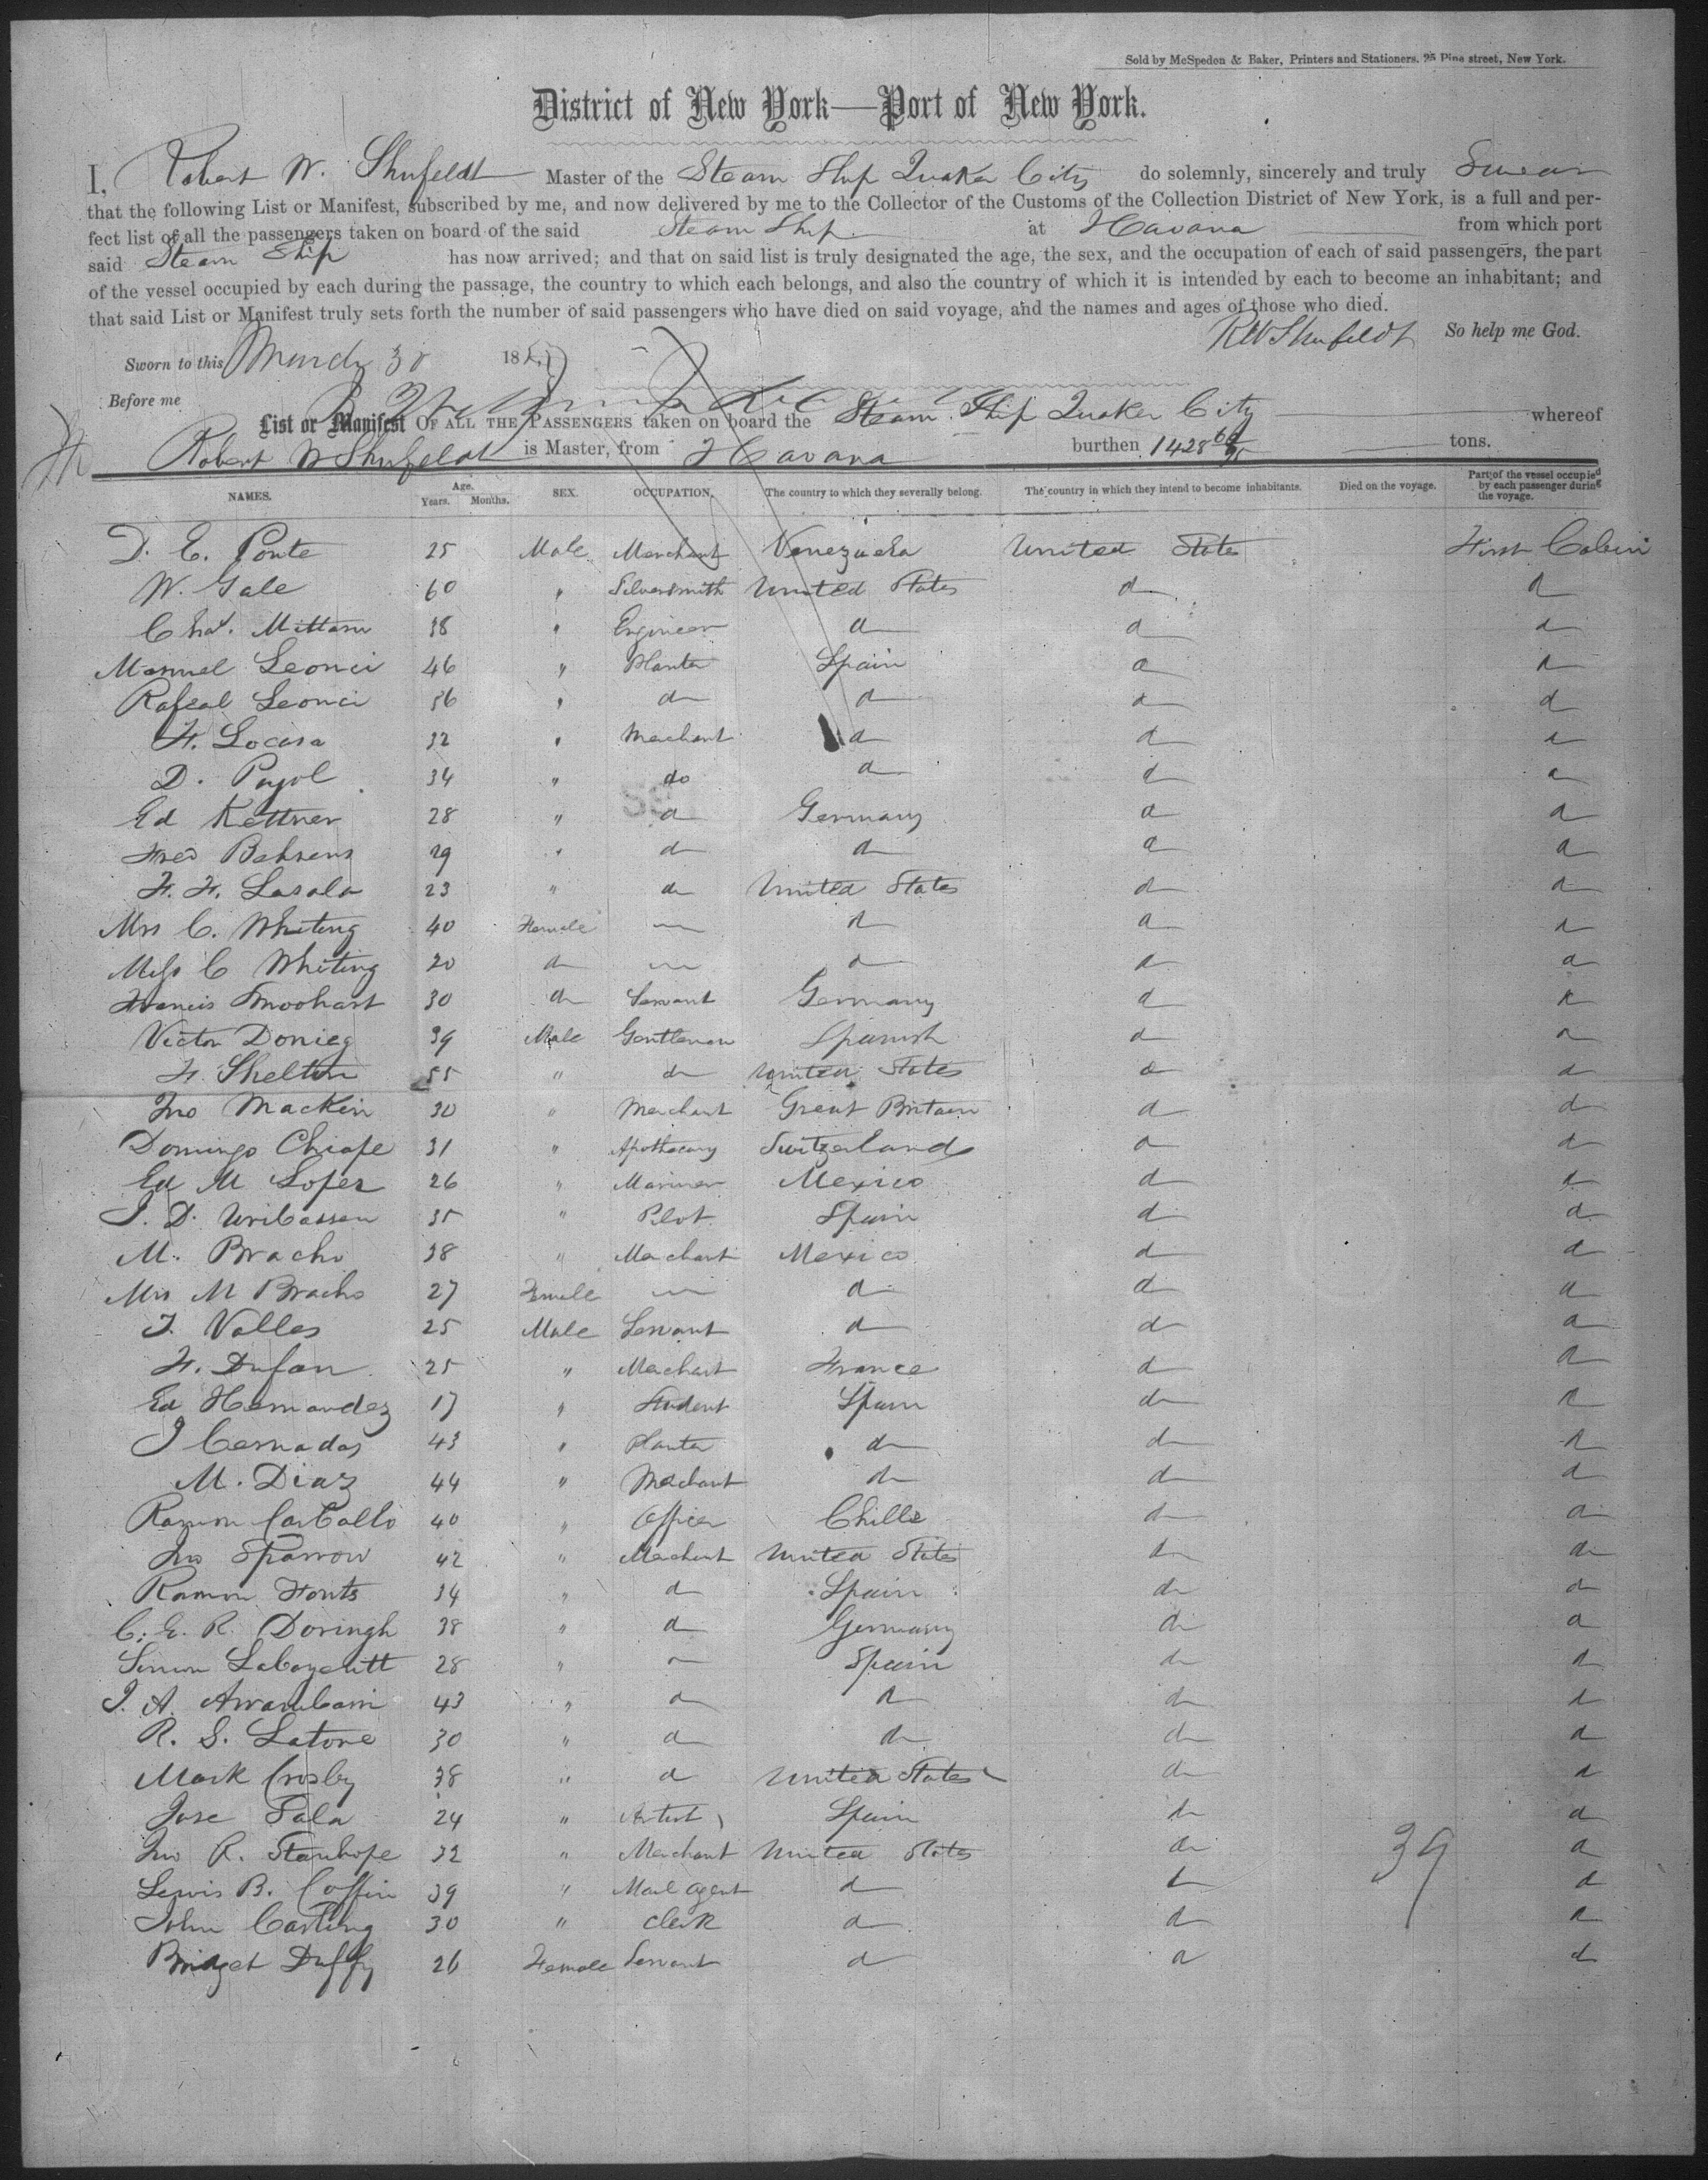 Sold by McSpedon & Baker, Printers and Stationers, 25 Pine street, New York.
District of New York—Port of New York.
I, Robert W. Shufeldt Master of the Steam Ship Quaker City do solemnly, sincerely and truly Swear
that the following List or Manifest, subscribed by me, and now delivered by me to the Collector of the Customs of the Collection District of New York, is a full and per-
fect list of all the passengers taken on board of the said Steam Ship at Havana from which port
said Steam Ship has now arrived; and that on said list is truly designated the age, the sex, and the occupation of each of said passengers, the part
of the vessel occupied by each during the passage, the country to which each belongs, and also the country of which it is intended by each to become an inhabitant; and
that said List or Manifest truly sets forth the number of said passengers who have died on said voyage, and the names and ages of those who died.
RW Shufeldt So help me God.
Sworn to this March 30 185
Before me
List or Manifest OF ALL THE PASSENGERS taken on board the Steam Ship Quaker City whereof
Robert W Shufeldt is Master, from Havana burthen 1428 tons.
NAMES. Age. Years. Months. SEX. OCCUPATION. The country to which they severally belong. The country in which they intend to become inhabitants. Died on the voyage. Part of the vessel occupied by each passenger during the voyage.
D. E. Ponte 25 Male Merchant Venezuela United States First Cabin
W. Gale 60 " Silversmith United States d d
Chas. Mittann 38 " Engineer d d d
Manuel Leonci 46 " Planter Spain d d
Rafeal Leonci 56 " d d d d
F. Locasa 32 " Merchant d d d
D. Pujol 34 " do d d d
Ed Kettner 28 " d Germany d d
Fred Behrens 29 " d d d d
F. F. Lasala 23 " d United States d d
Mrs C. Whiting 40 Female — d d d
Miss C Whiting 20 d — d d d
Francis 30 d Servant Germany d d
Victor Donieg 39 Male Gentleman Spanish d d
F. Shelton 55 " d United States d d
Jno Mackin 30 " Merchant Great Britain d d
Domingo Chiape 31 " Apothecary Switzerland d d
Ed M Lopez 26 " Mariner Mexico d d
J. D. Uribassen 35 " Pilot Spain d d
M. Bracho 38 " Merchant Mexico d d
Mrs M Bracho 27 Female — d d d
J. Valles 25 Male Servant d d d
F. Dufau 25 " Merchant France d d
Ed Hernandez 17 " Student Spain d d
J Cernadas 43 " Planter d d d
M. Diaz 44 " Merchant d d d
Ramon Carballo 40 " Officer Chille d d
Jno Sparrow 42 " Merchant United States d d
Ramon Fonts 34 " d Spain d d
C. E. R. Doringh 38 " d Germany d d
Simon 28 " d Spain d d
J. A. 43 " d d d d
R. S. Latorre 30 " d d d d
Mark Crosby 38 " d United States d d
Jose Sala 24 " Artist Spain d d
Jno R. Stanhope 32 " Merchant United States d d
Lewis B. Coffin 39 " Mail Agent d d d
John Carling 30 " Clerk d d d
Bridget Duffy 26 Female Servant d d d
39